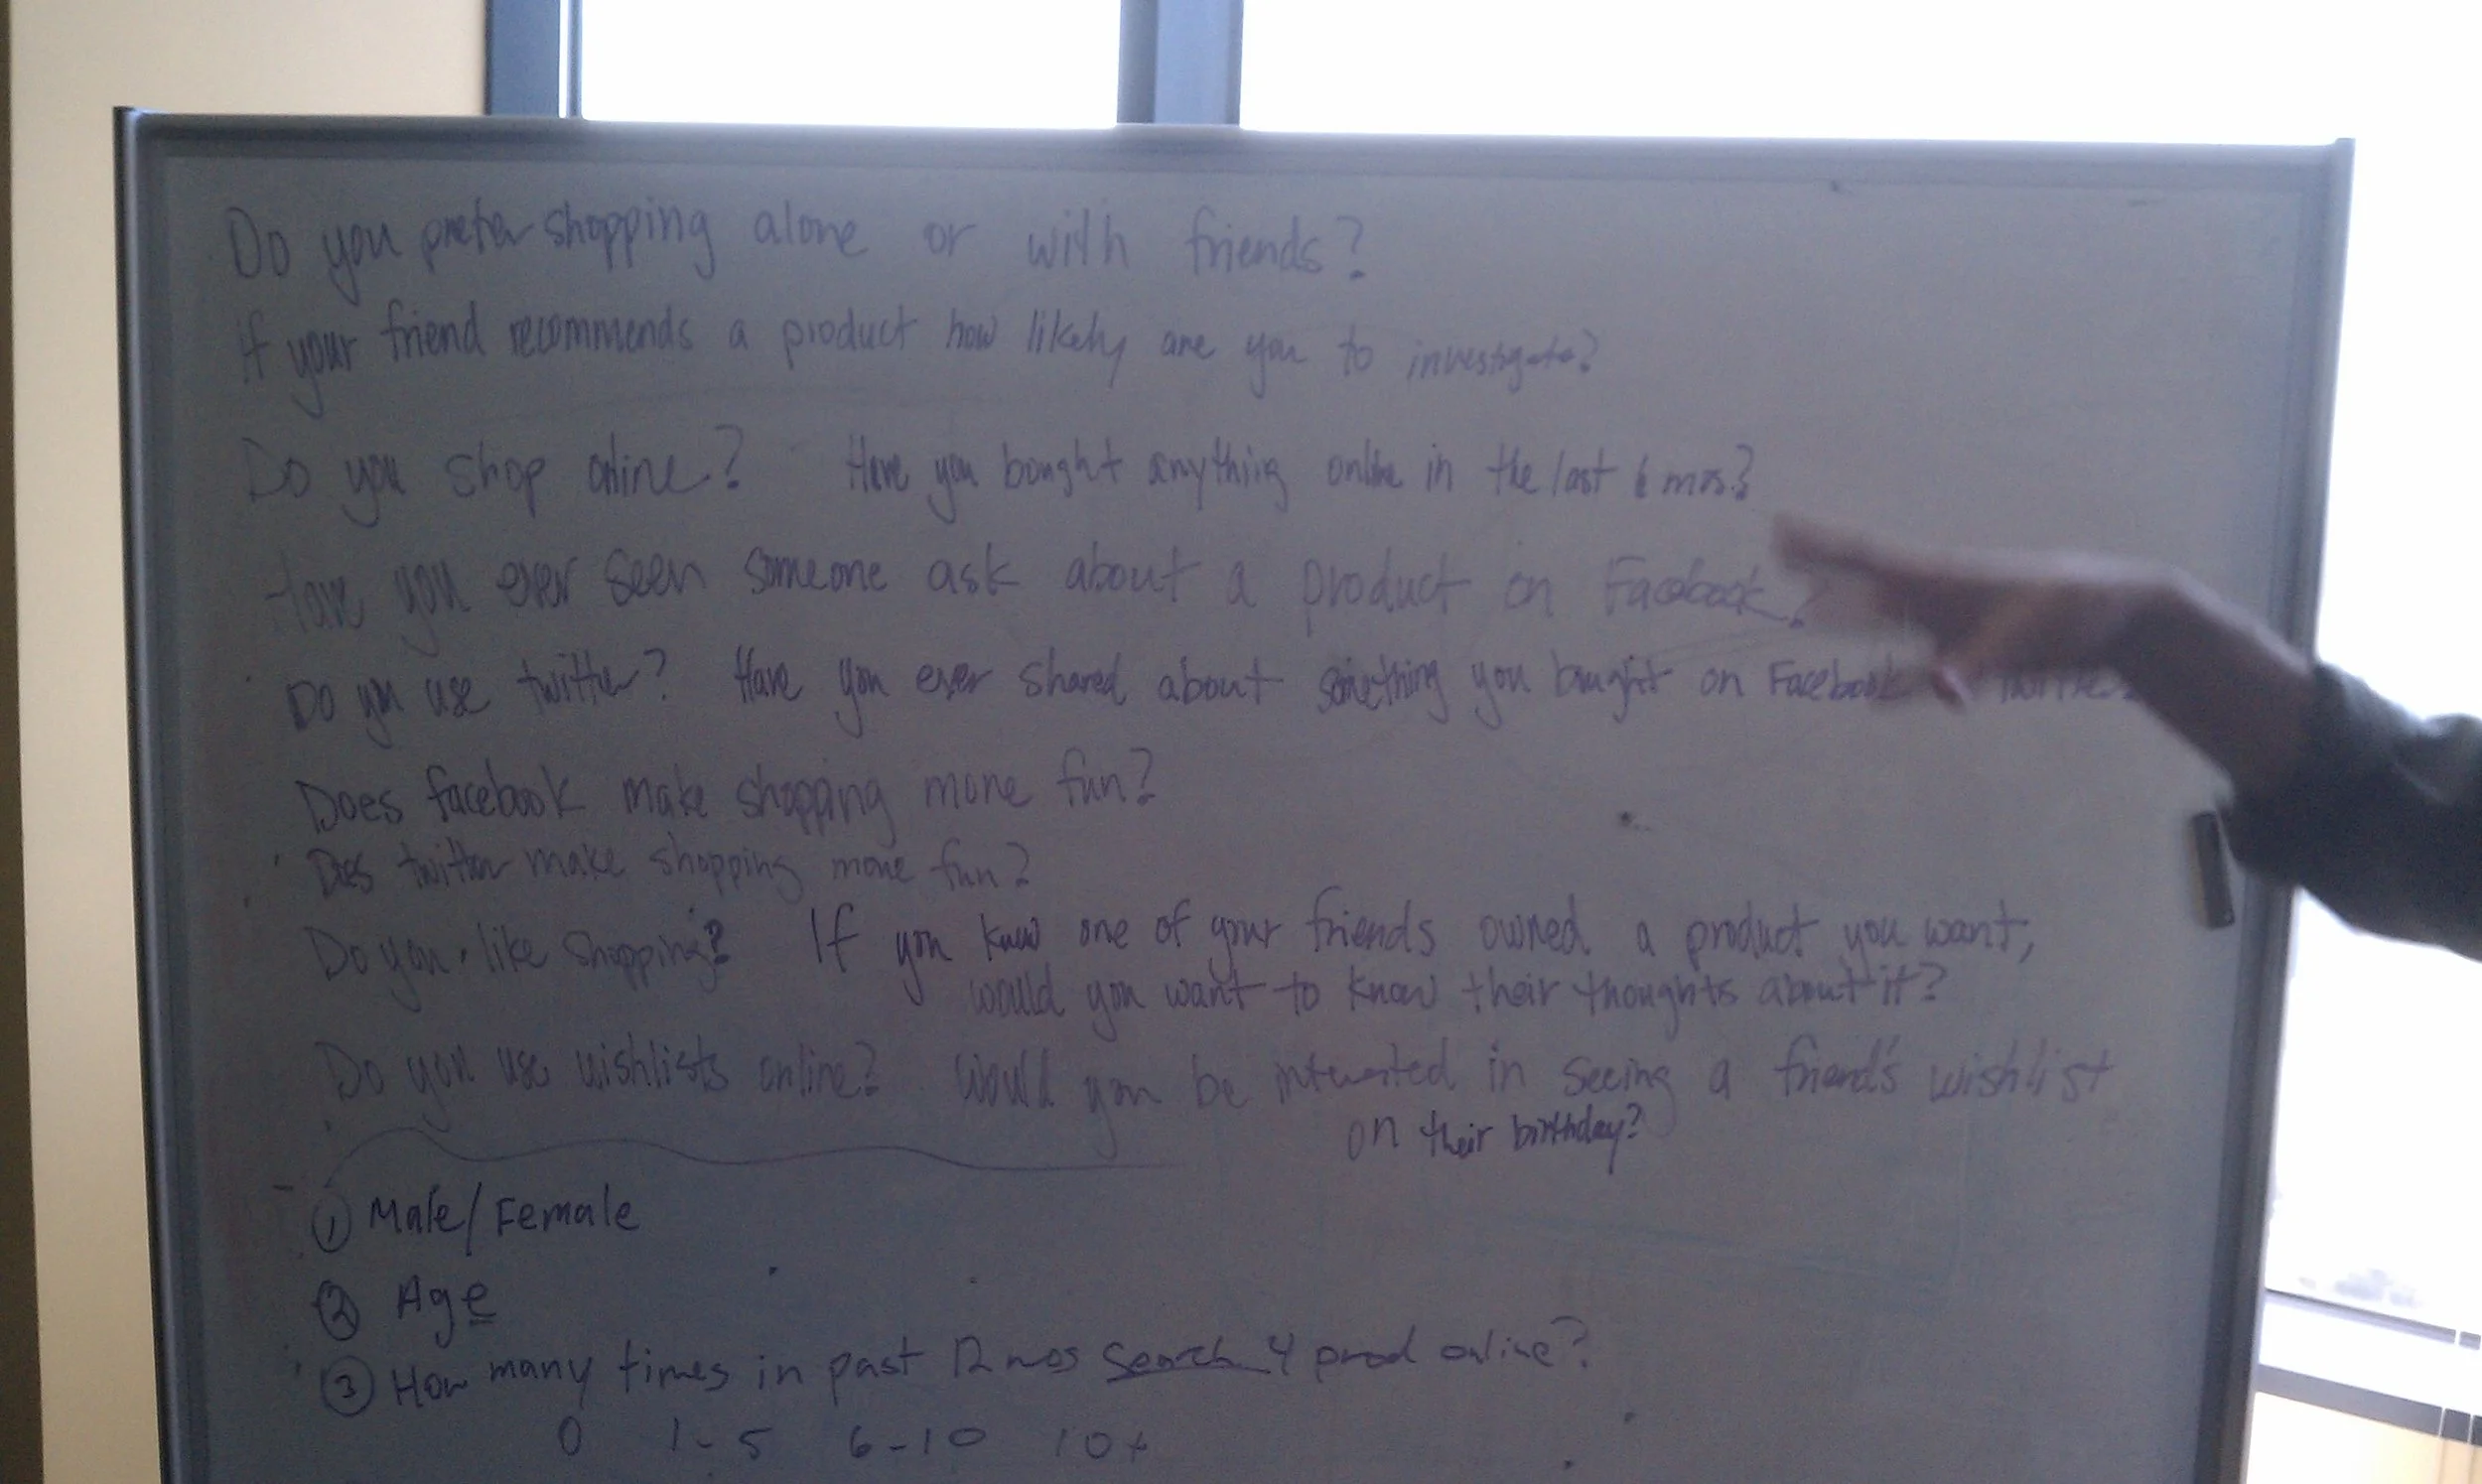 Do you prefer shopping alone or with friends?
If your friend recommends a product how likely are you to investigate?
Do you shop online? Have you bought anything online in the last 6 mos?
Have you ever seen someone ask about a product on Facebook?
Do you use twitter? Have you ever shared about something you bought on Facebook
Does facebook make shopping more fun?
Does twitter make shopping more fun?
Do you like shopping? If you knew one of your friends owned a product you want,
would you want to know their thoughts about it?
Do you use wishlists online? Would you be interested in seeing a friend's wishlist
on their birthday?
① Male/Female
② Age
③ How many times in past 12 mos search 4 prod online?
0 1-5 6-10 10+